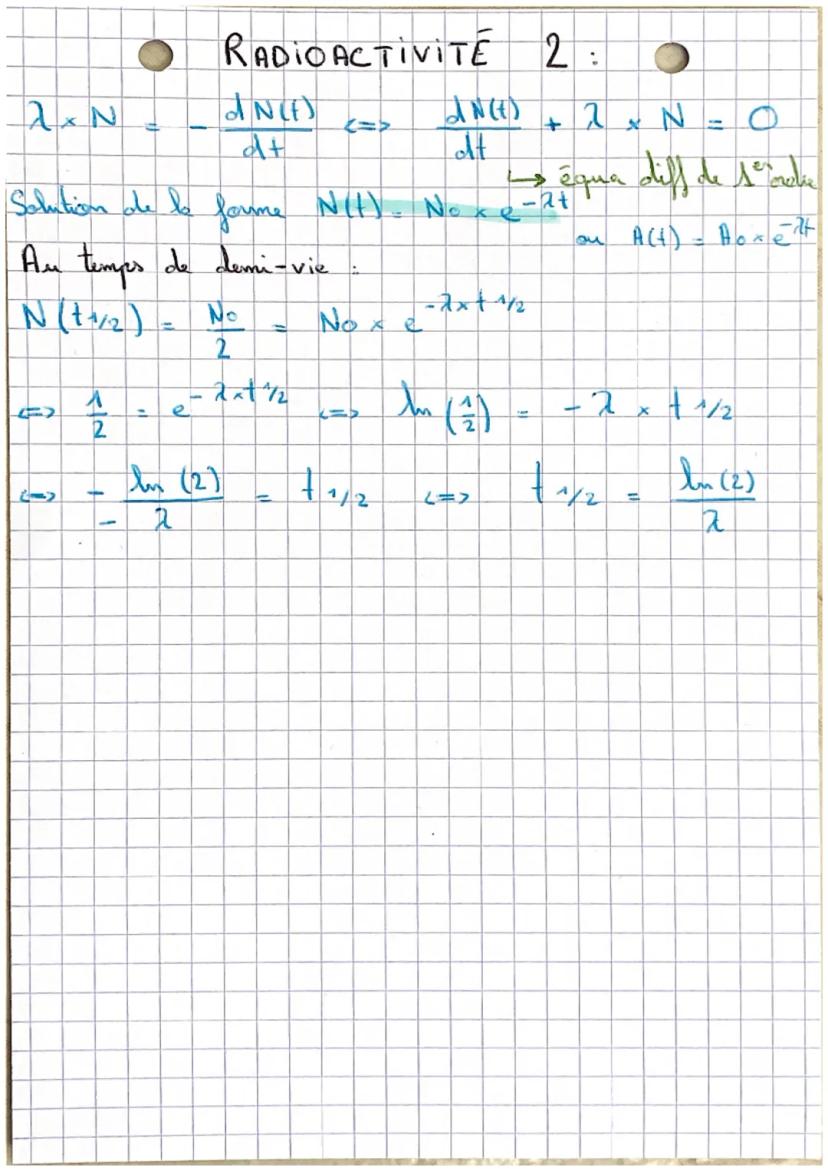 RADIOACTIVITÉ 2 :
λ × N = - dN(t)/dt <=> dN(t)/dt + λ × N = 0
↳ équa diff de 1er ordre
Solution de la forme N(t) = No × e^-λt
ou A(t) = Ao × e^-λt
Au temps de demi-vie :
N(t1/2) = No/2 = No × e^-λ×t1/2
<=> 1/2 = e^-λ×t1/2 <=> ln(1/2) = - λ × t1/2
<=> - ln(2)/- λ = t1/2 <=> t1/2 = ln(2)/λ